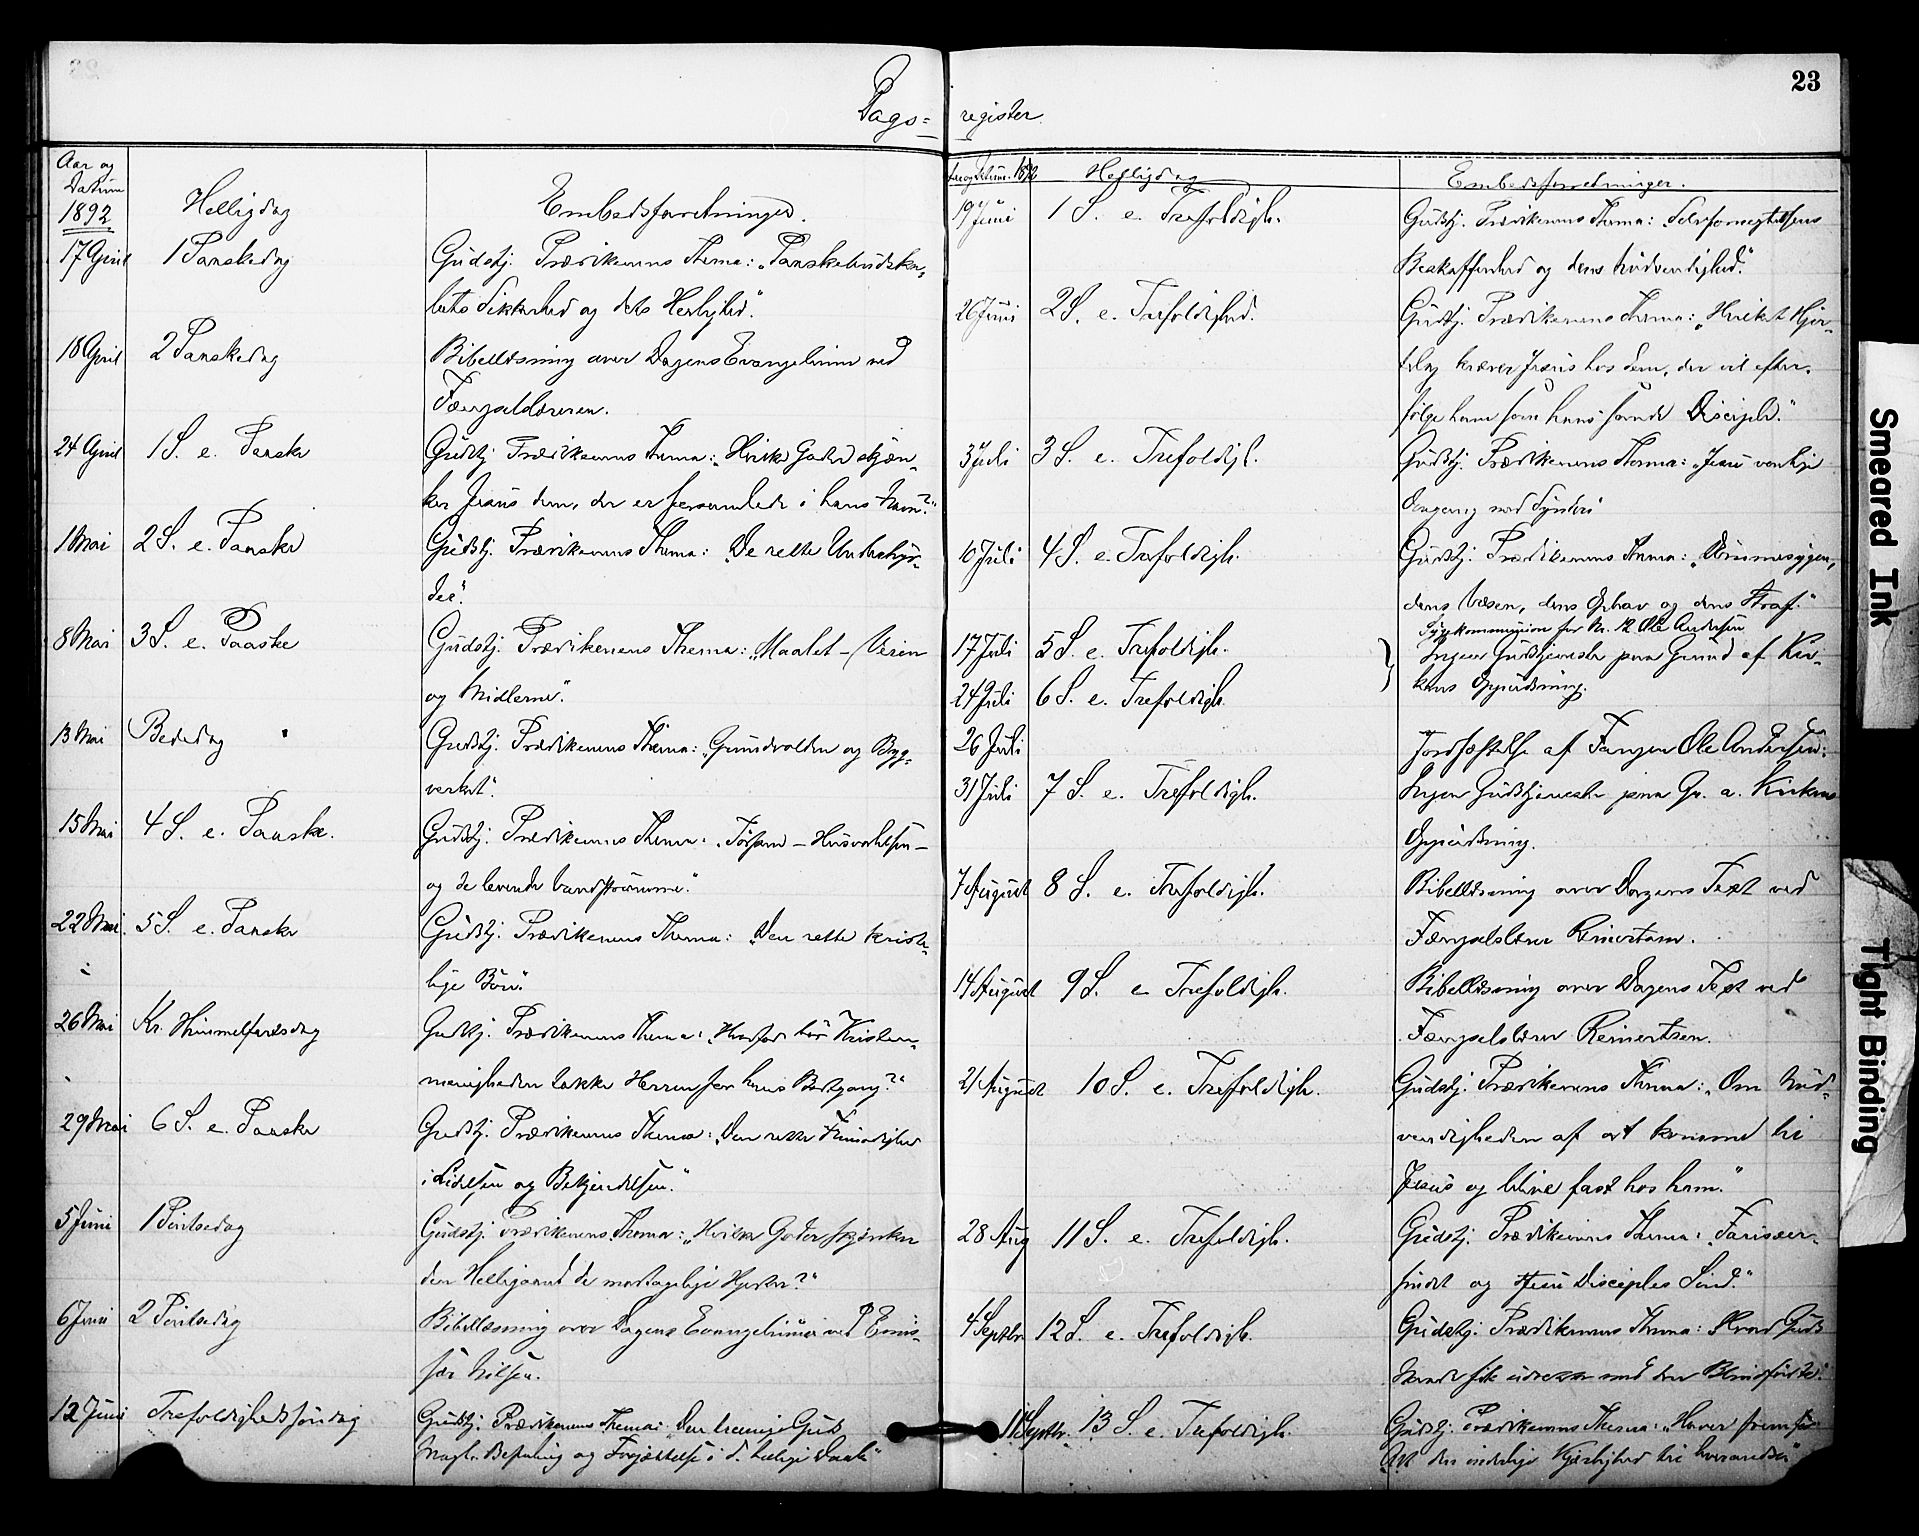 Dags=
Aar og
Datum
1892
Helligdag
Embedsforretninger.
17 April 1 Paaskedag Gudstj. Prædikenens Thema: „Paaskebudska-
bets Sikkerhed og dets Herlighed."
18 April 2 Paaskedag Bibellæsning over Dagens Evangelium ved
Fængselslæreren.
24 April 1 S. e. Paaske Gudstj. Prædikenens Thema: „Hvilke Goder skjæn-
ker Jesus dem, der er forsamlede i hans Navn?"
1 Mai 2 S. e. Paaske Gudstj. Prædikenens Thema: „De rette Underhyr-
der".
8 Mai 3 S. e. Paaske Gudstj. Prædikenens Thema: „Maalet – Veien
og Midlerne".
13 Mai Bededag Gudstj. Prædikenens Thema: „Grundvolden og Byg-
verket".
15 Mai 4 S. e. Paaske. Gudstj. Prædikenens Thema: „Tørsten – Husvalelsen –
og de levende Vandstrømme."
22 Mai. 5 S. e. Paaske Gudstj. Prædikenens Thema: „Den rette kriste-
lige Bøn".
26 Mai Kr. Himmelfartsdag Gudstj. Prædikenens Thema: „Hvorfor bør Kristen-
menigheden takke Herren for hans Bortgang?"
29 Mai 6 S. e. Paaske Gudstj. Prædikenens Thema: „Den rette Frimodighed
i Lidelsen og Bekjendelsen."
5 Juni 1 Pintsedag Gudstj. Prædikenens Thema: „Hvilke Goder skjænker
den Helligaand de modtagelige Hjerter?"
6 Juni 2 Pintsedag Bibellæsning over Dagens Evangelium ved Emis-
sær Nilsen.
12 Juni Trefoldighedssøndag Gudstj. Prædikenens Thema: „Den treenige Guds
og i d. hellige Daab"
23
register.
Aar og Datum 1892 Helligdag Embedsforretninger.
19 Juni 1 S. e. Trefoldigh. Gudstj. Prædikenens Thema: „Selvfornegtelsens
Beskaffenhed og dens Nødvendighed."
26 Juni 2 S. e. Trefoldighed. Gudstj. Prædikenens Thema: „Hvilket Hjer-
telag kræver Jesus hos dem, der vil efter-
følge ham som hans sande Disciple."
3 Juli 3 S. e. Trefoldigh. Gudstj. Prædikenens Thema: „Jesu venlige
Omgang med Syndere
10 Juli 4 S. e. Trefoldigh. Gudstj. Prædikenens Thema: „Dømmesygen,
dens Væsen, dens Ophav og dens Straf."
Sygekommunion for Nr. 12 Ole Andersen
17 Juli 5 S. e. Trefoldigh. Ingen Gudstjeneste paa Grund af Kir-
24 Juli 6 S. e. Trefoldigh. kens Oppudsning.
26 Juli Jordfæstelse af Fangen Ole Andersen.
31 Juli 7 S. e. Trefoldigh. Ingen Gudstjeneste paa Gr. a. Kirkens
Oppudsning.
7 August 8 S. e. Trefoldigh. Bibellæsning over Dagens Text ved
Fængselslærer Reinertsen.
14 August 9 S. e Trefoldigh. Bibellæsning over Dagens Text ved
Fængselslærer Reinertsen.
21 August 10 S. e. Trefoldigh. Gudstj. Prædikenens Thema: „Om Nød-
vendigheden af at komme til
Jesus og blive fast hos ham."
28 Aug 11 S. e. Trefoldigh. Gudstj. Prædikenens Thema: „Farisæer-
sindet og Jesu Disciples Sind."
4 Septbr 12 S. e. Trefoldigh. Gudstj. Prædikenens Thema: Hvad Guds
Naade fik udrettet med den Blindfødte.
11 Septbr. 13 S. e. Trefoldigh. Gudstj. Prædikenens Thema: „Haver fremfor
Alt den inderlige Kjærlighed til hverandre"
Smeared Ink
Tight Binding